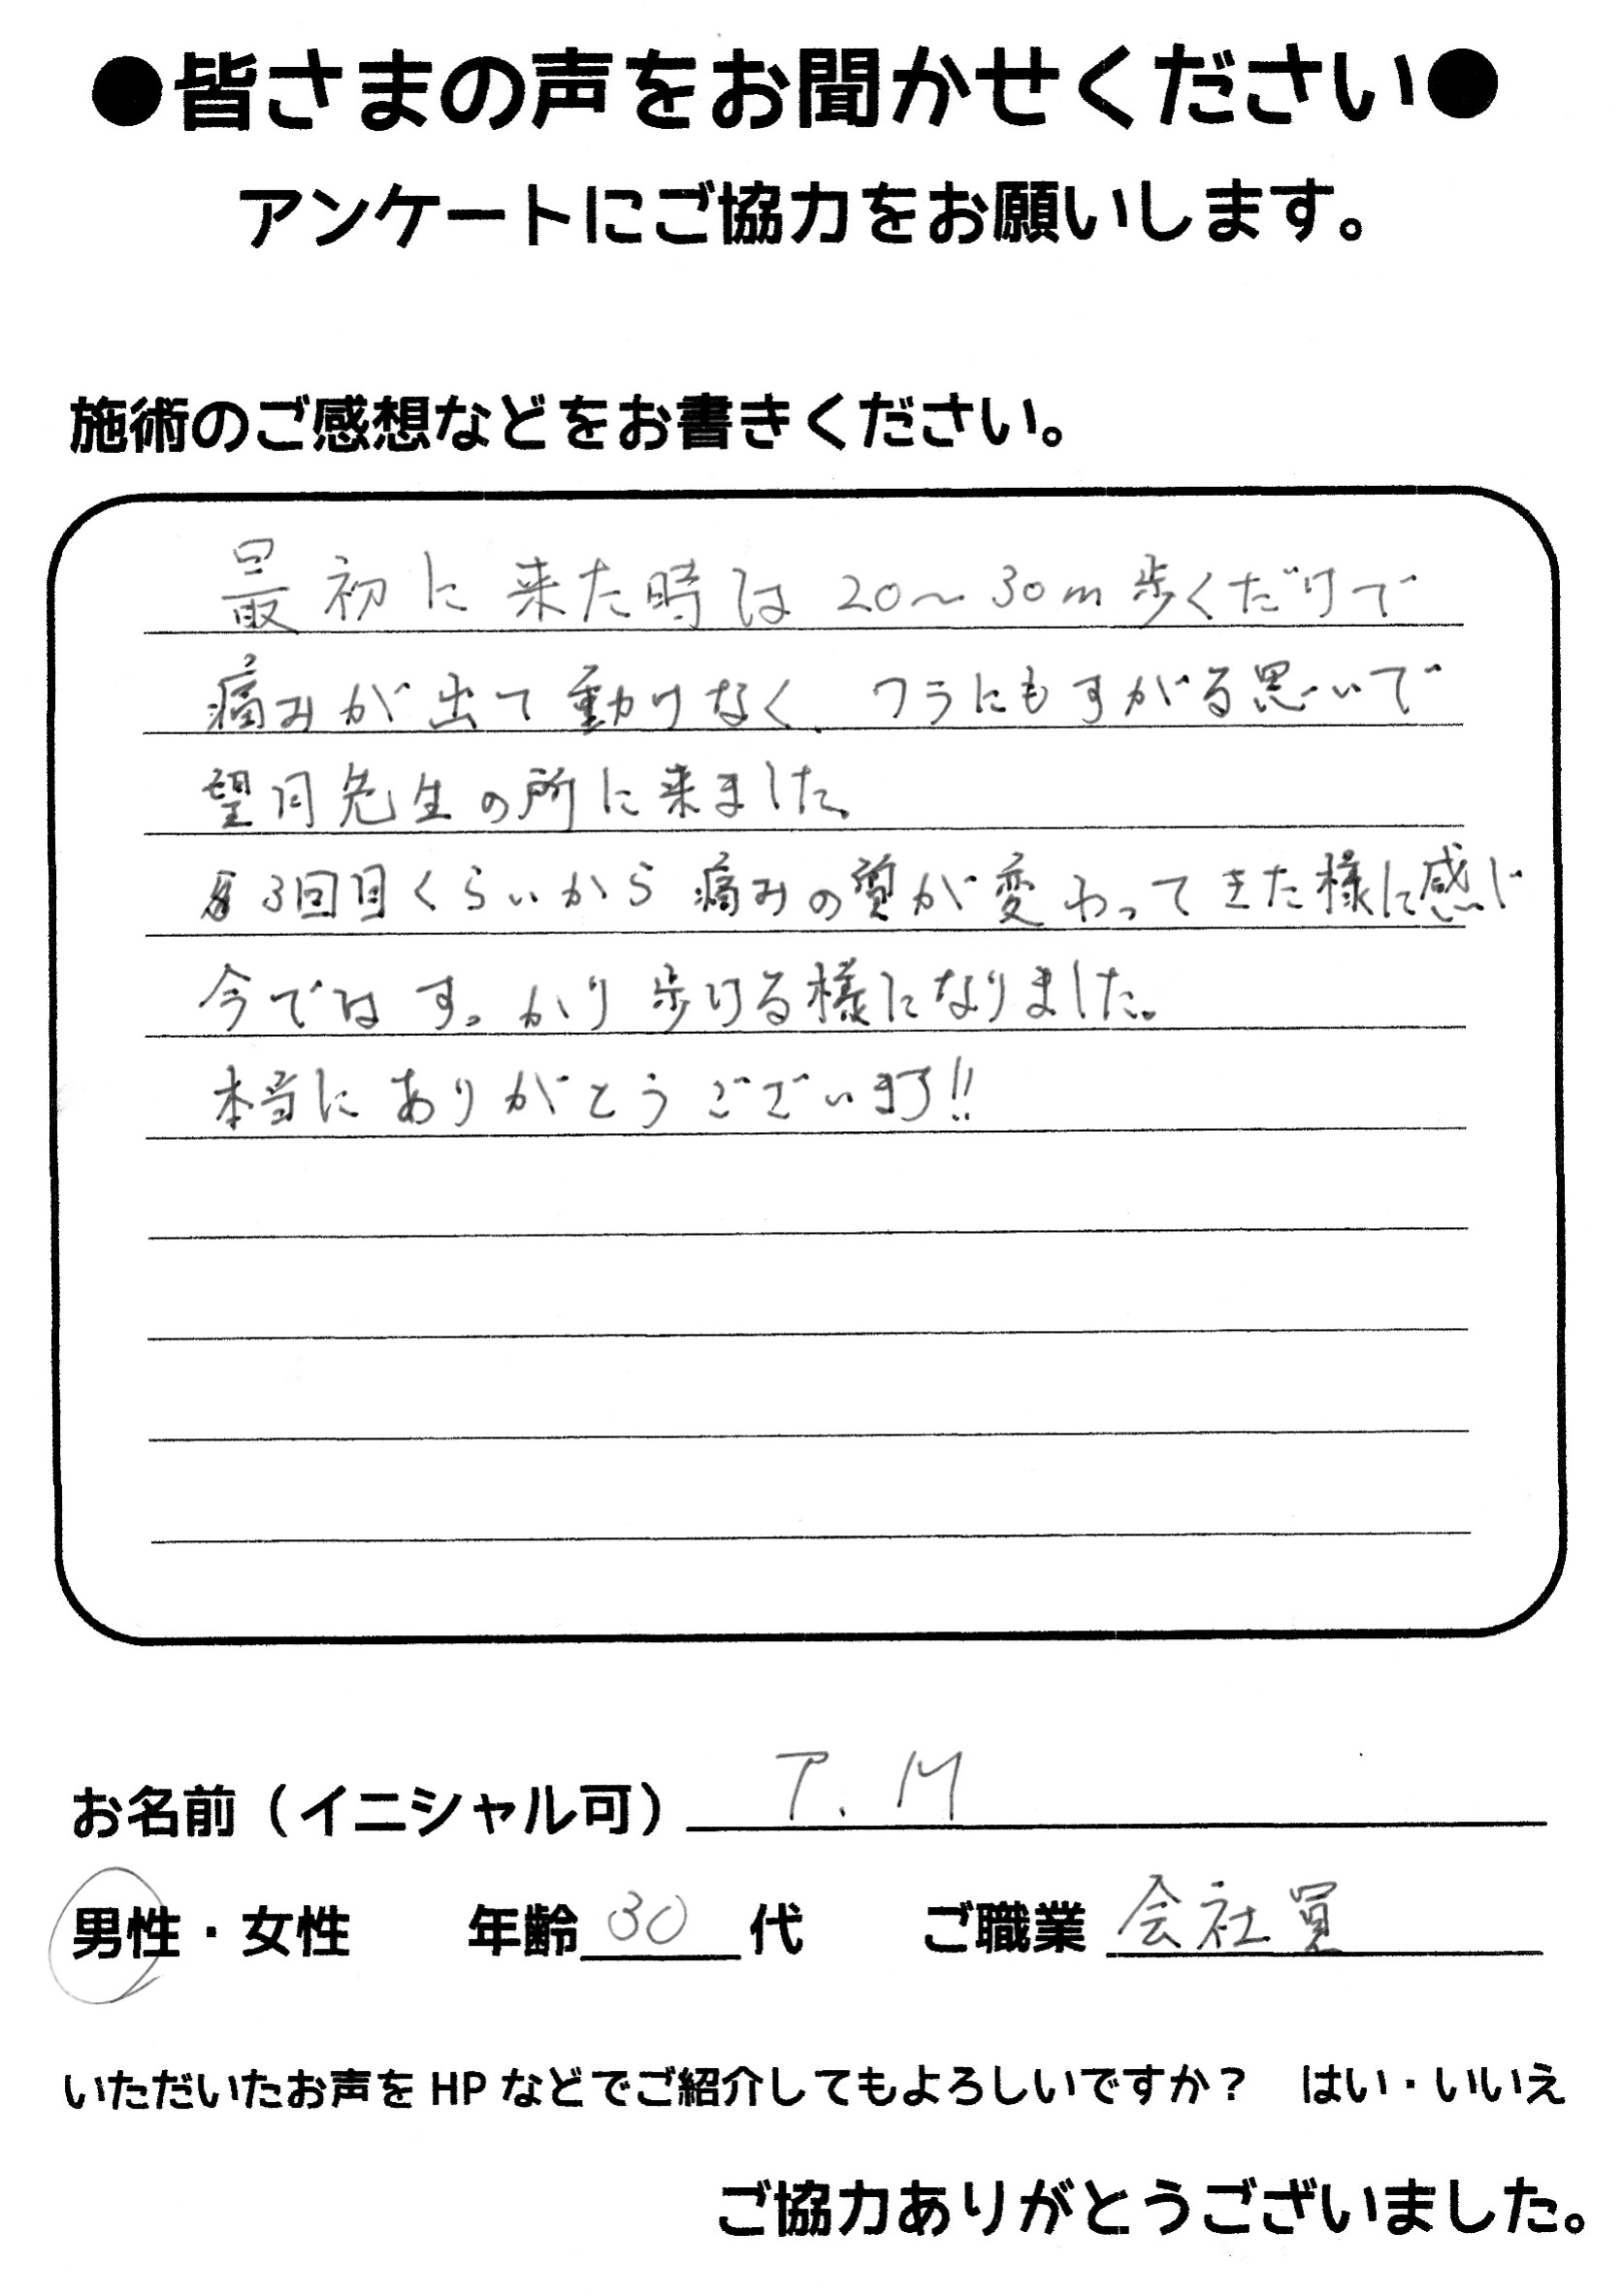 ●皆さまの声をお聞かせください●
アンケートにご協力をお願いします。
施術のご感想などをお書きください。
最初に来た時は20〜30m歩くだけで
痛みが出て動けなく、ワラにもすがる思いで
望月先生の所に来ました。
3回目くらいから痛みの質が変わってきた様に感じ
今ではすっかり歩ける様になりました。
本当にありがとうございます!!
お名前（イニシャル可） T.M
男性・女性 年齢 30 代 ご職業 会社員
いただいたお声を HP などでご紹介してもよろしいですか？ はい・いいえ
ご協力ありがとうございました。